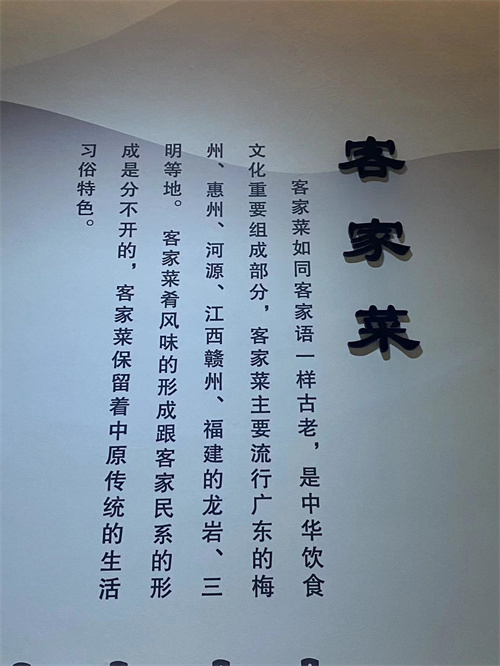 客家菜
客家菜如同客家语一样古老，是中华饮食
文化重要组成部分，客家菜主要流行广东的梅
州、惠州、河源、江西赣州、福建的龙岩、三
明等地。客家菜肴风味的形成跟客家民系的形
成是分不开的，客家菜保留着中原传统的生活
习俗特色。